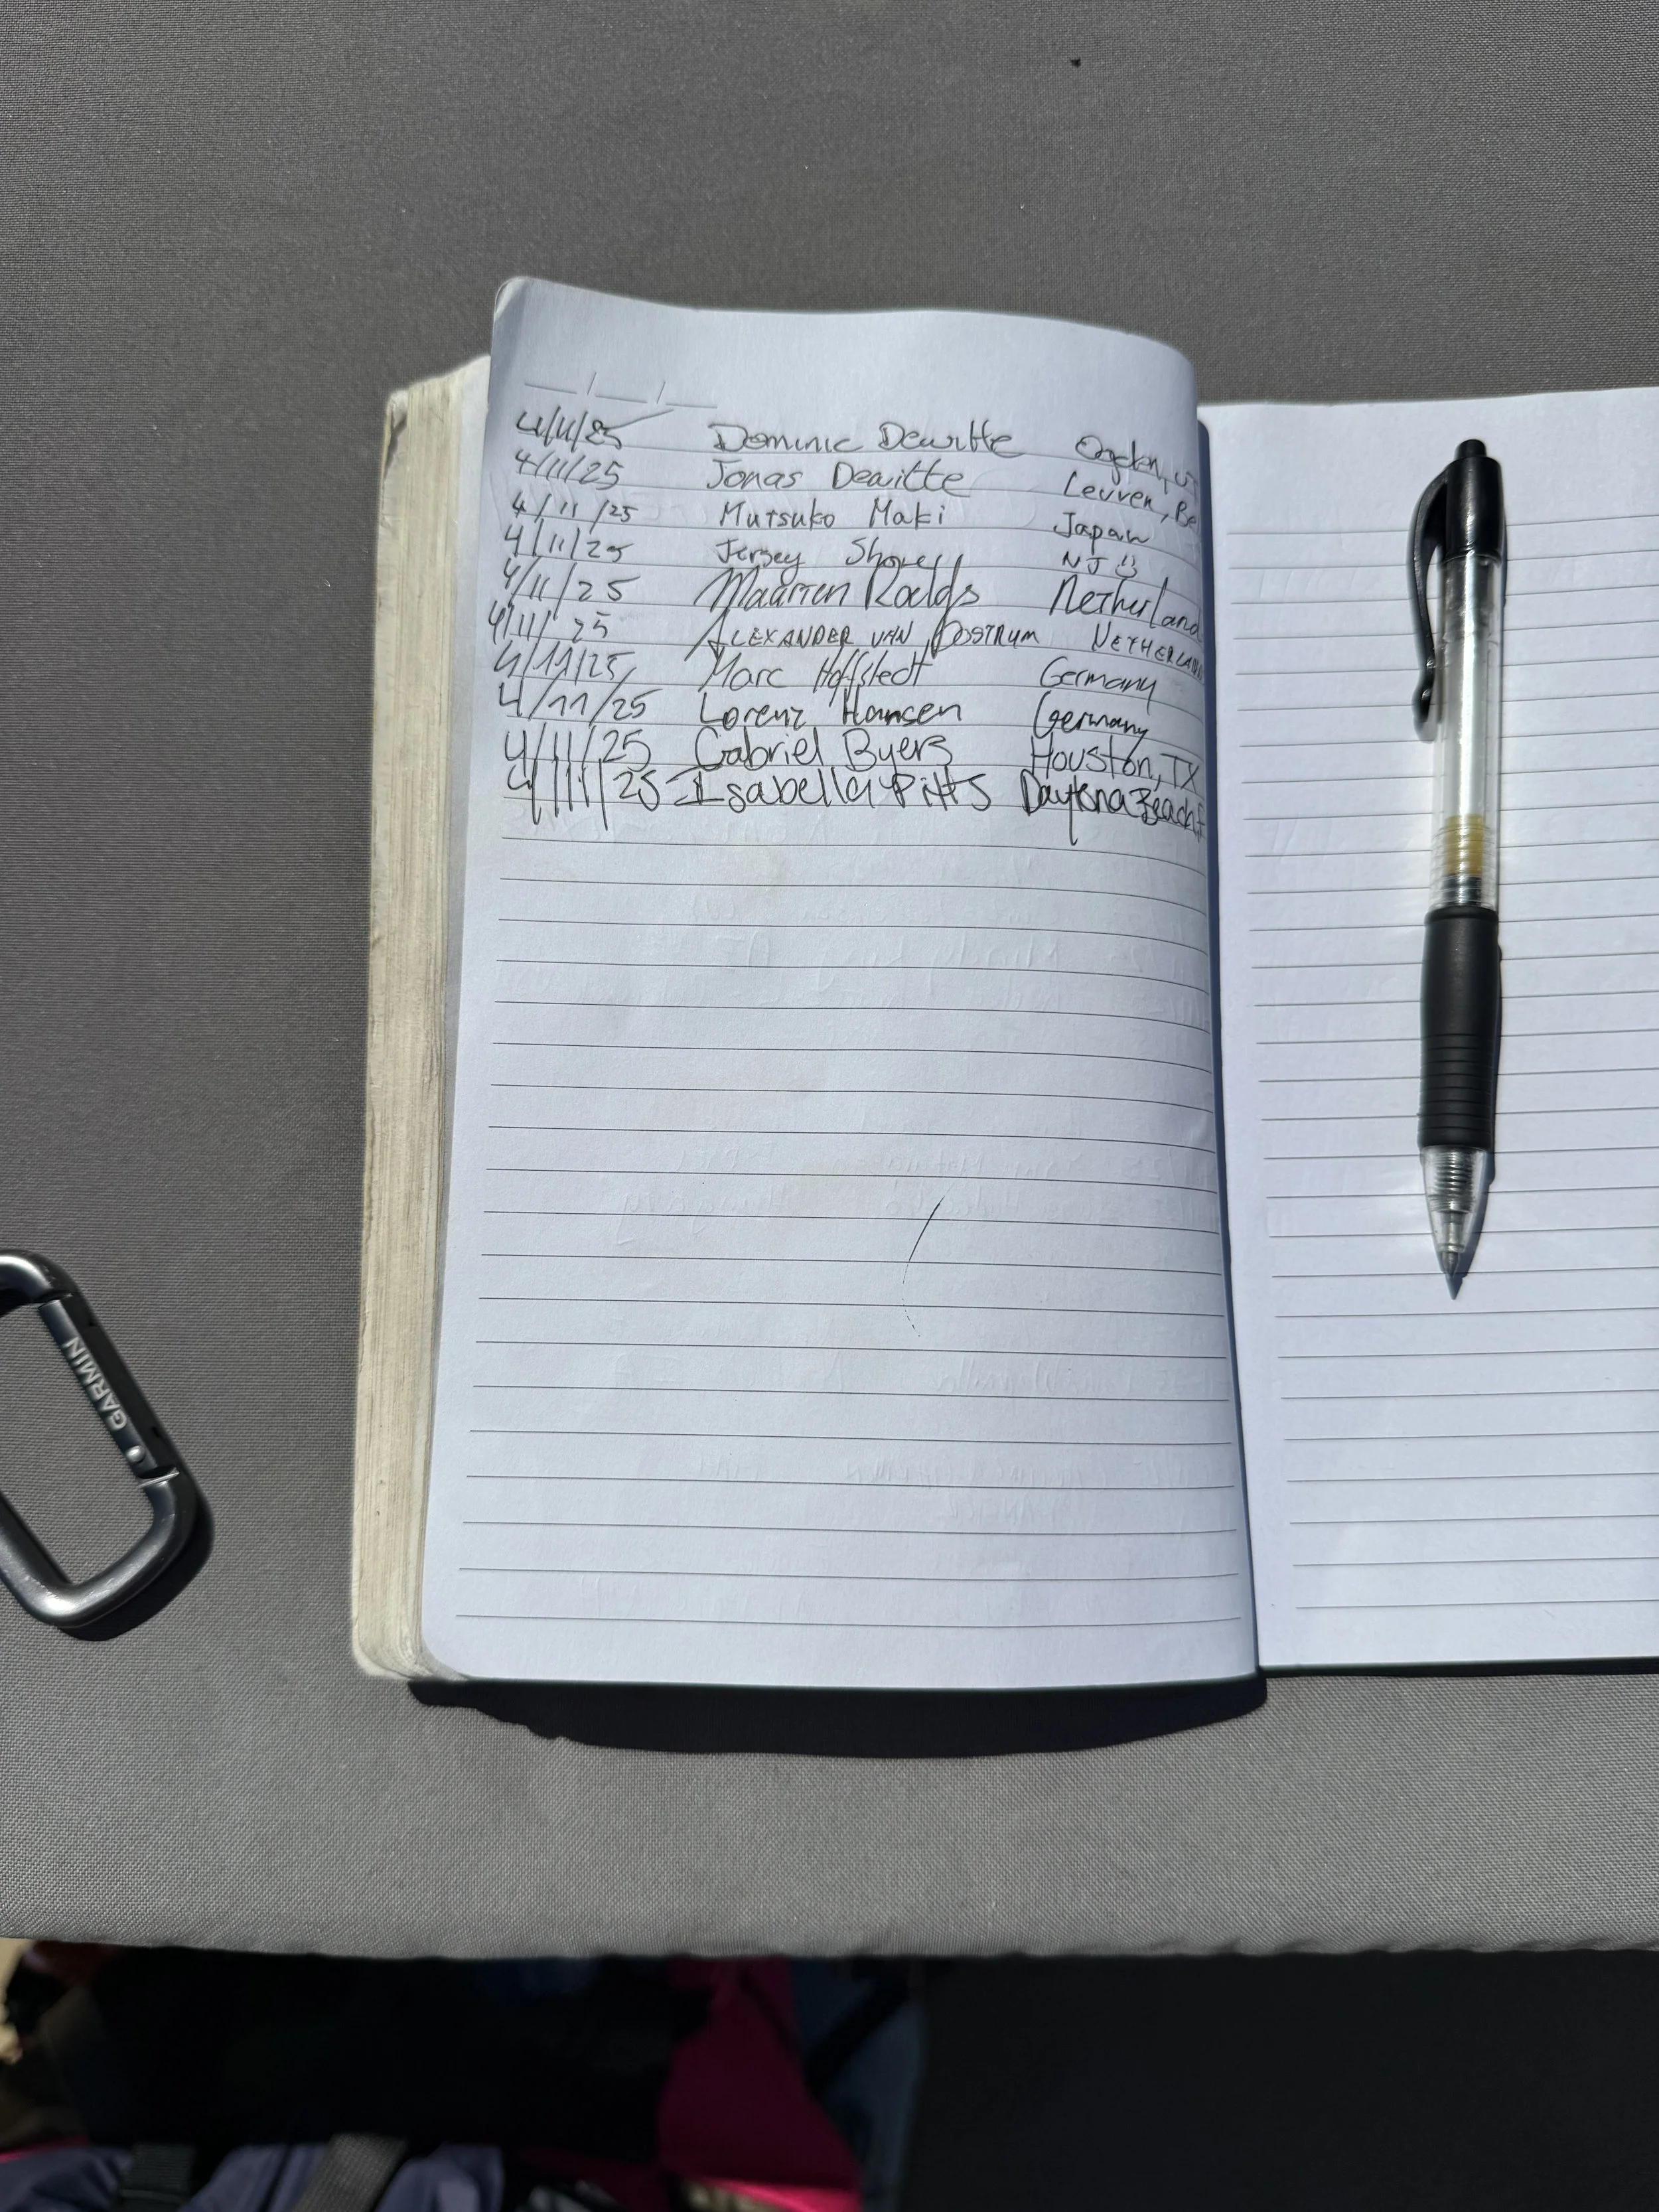 4/11/25 Dominic Dewitte Ogden, UT
4/11/25 Jonas Dewitte Leuven, Be
4/11/25 Mutsuko Maki Japan
4/11/25 Jersey Shore NJ
4/11/25 Netherland
4/11/25 ALEXANDER VAN OOSTRUM NETHERLAN
4/11/25 Marc Hoffstedt Germany
4/11/25 Lorenz Hansen Germany
4/11/25 Gabriel Byers Houston, TX
4/11/25 Isabella Pitts Daytona Beach F
GARMIN